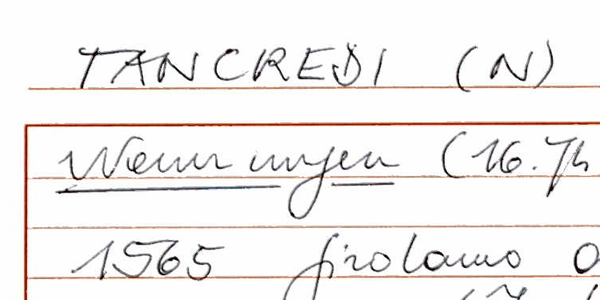 TANCREDI (N)
Nennungen (16. Jh
1565 Girolamo